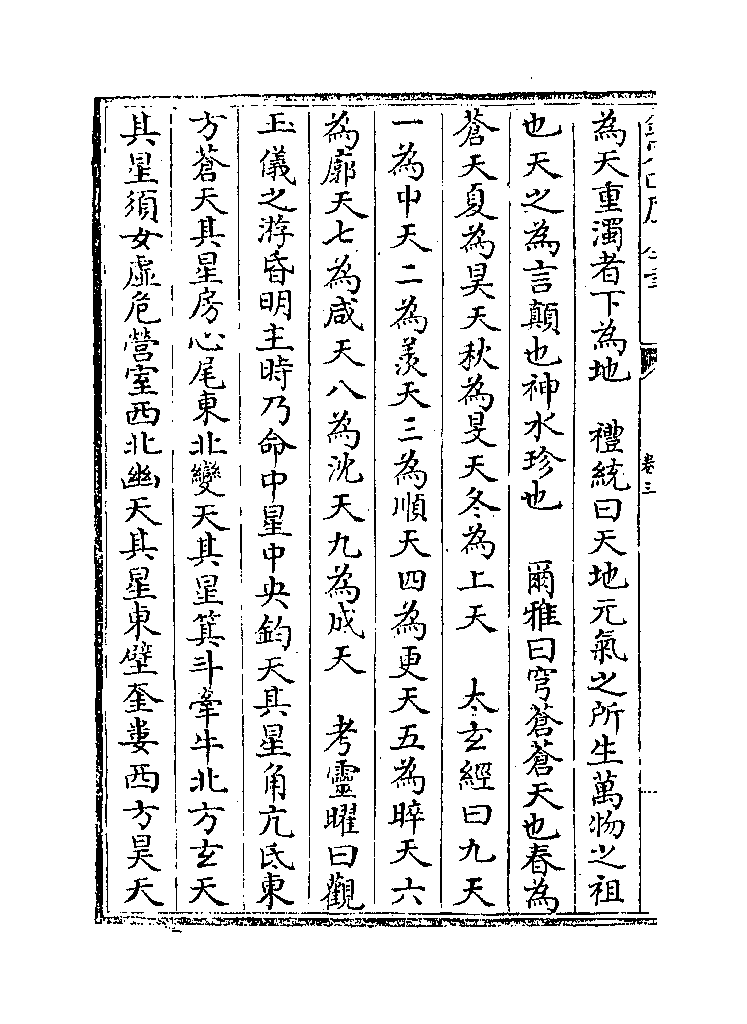 為天重濁者下為地　禮統曰天地元氣之所生萬物之祖
也天之為言顛也神水珍也　爾雅曰穹蒼蒼天也春為
蒼天夏為昊天秋為旻天冬為上天　太玄經曰九天
一為中天二為羨天三為順天四為更天五為晬天六
為廓天七為咸天八為沈天九為成天　考靈曜曰觀
玉儀之游昏明主時乃命中星中央鈞天其星角亢氐東
方蒼天其星房心尾東北變天其星箕斗牽牛北方玄天
其星須女虛危營室西北幽天其星東壁奎婁西方昊天
卷三